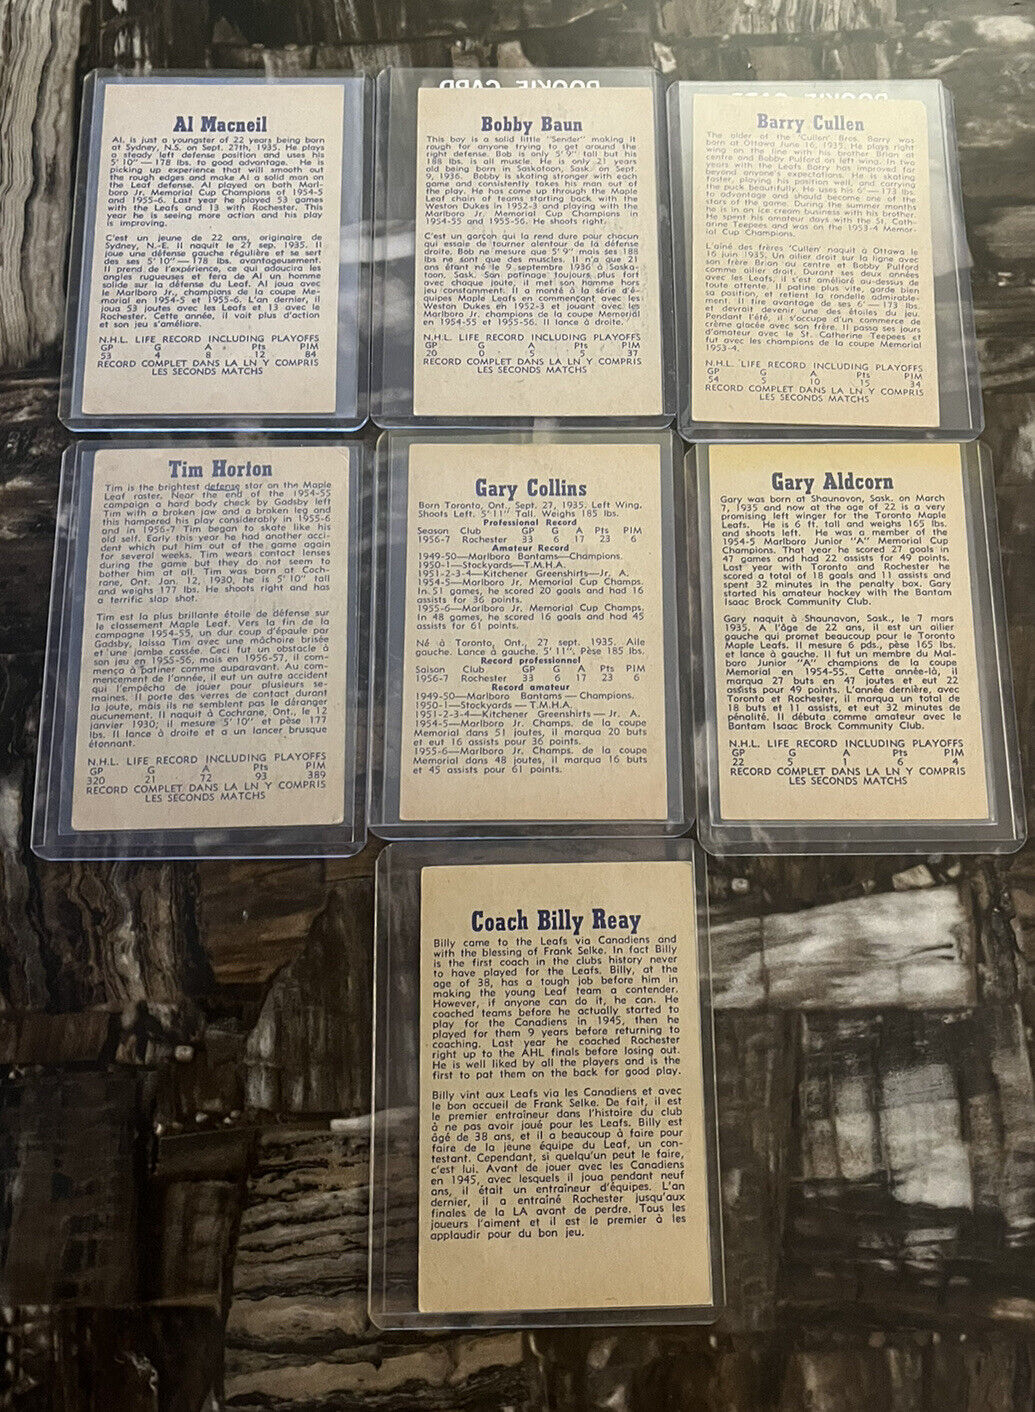 Al Macneil
Al, is just a youngster of 22 years being born
at Sydney, N.S. on Sept. 27th, 1935. He plays
a steady left defense position and uses his
5' 10" — 178 lbs. to good advantage. He is
picking up experience that will smooth out
the rough edges and make Al a solid man on
the Leaf defense. Al played on both Marl-
boro Jr. Memorial Cup Champions of 1954-5
and 1955-6. Last year he played 53 games
with the Leafs and 13 with Rochester. This
year he is seeing more action and his play
is improving.
C'est un jeune de 22 ans, originaire de
Sydney, N.-E. Il naquit le 27 sep. 1935. Il
joue une défense gauche régulière et se sert
des ses 5' 10"— 178 lbs. avantageusement.
Il prend de l'expérience, ce qui adoucira les
angles rugueuses et fera de Al un homme
solide sur la défense du Leaf. Al joua avec
le Marlboro Jr., champions de la coupe Me-
morial en 1954-5 et 1955-6. L'an dernier, il
joua 53 joutes avec les Leafs et 13 avec le
Rochester. Cette année, il voit plus d'action
et son jeu s'améliore.
N.H.L. LIFE RECORD INCLUDING PLAYOFFS
GP G A Pts PIM
53 4 8 12 84
RECORD COMPLET DANS LA LN Y COMPRIS
LES SECONDS MATCHS
ROOKIE CARD
Bobby Baun
This boy is a solid little "Sender" making it
rough for anyone trying to get around the
right defense. Bob is only 5' 9" tall but his
188 lbs. is all muscle. He is only 21 years
old being born in Saskatoon, Sask. on Sept.
9, 1936. Bobby is skating stronger with each
game and consistently takes his man out of
the play. He has come up through the Maple
Leaf chain of teams starting back with the
Weston Dukes in 1952-3 and playing with the
Marlboro Jr. Memorial Cup Champions in
1954-55 and 1955-56. He shoots right.
C'est un garçon qui la rend dure pour chacun
qui essaie de tourner alentour de la défense
droite. Bob ne mesure que 5' 9" mais ses 188
lbs ne sont que des muscles. Il n'a que 21
ans étant né le 9 septembre 1936 à Saska-
toon, Sask. Son patinage toujours plus fort
avec chaque joute, il met son homme hors
jeu constamment. Il a monté à la série d'é-
quipes Maple Leafs en commençant avec les
Weston Dukes en 1952-3 et jouant avec les
Marlboro Jr. champions de la coupe Memorial
en 1954-55 et 1955-56. Il lance à droite.
N.H.L. LIFE RECORD INCLUDING PLAYOFFS
GP G A Pts PIM
20 0 5 5 37
RECORD COMPLET DANS LA LN Y COMPRIS
LES SECONDS MATCHS
Barry Cullen
The older of the 'Cullen' Bros. Barry was
born at Ottawa June 16, 1935. He plays right
wing on the line with his brother Brian at
centre and Bobby Pulford on left wing. In two
years with the Leafs Barry has improved far
beyond anyone's expectations. He is skating
faster, playing his position well, and carrying
the puck beautifully. He uses his 6' — 173 lbs.
to advantage and should become one of the
stars of the game. During the summer months
he is in an ice cream business with his brother.
He spent his amateur days with the St. Cath-
arine Teepees and was on the 1953-4 Memor-
ial Cup Champions.
L'aîné des frères 'Cullen' naquit à Ottawa le
16 juin 1935. Un ailier droit sur la ligne avec
son frère Brian au centre et Bobby Pulford
comme ailier droit. Durant ses deux années
avec les Leafs, il s'est amélioré au-dessus de
toute attente. Il patine plus vite, garde bien
sa position, et retient la rondelle admirable-
ment. Il tire avantage de ses 6' — 173 lbs.
et devrait devenir une des étoiles du jeu.
Pendant l'été, il s'occupe d'un commerce de
crème glacée avec son frère. Il passa ses jours
d'amateur avec le St. Catherine Teepees et
fut avec les champions de la coupe Memorial
1953-4.
N.H.L. LIFE RECORD INCLUDING PLAYOFFS
GP G A Pts PIM
54 5 10 15 34
RECORD COMPLET DANS LA LN Y COMPRIS
LES SECONDS MATCHS
Tim Horton
Tim is the brightest defense star on the Maple
Leaf raster. Near the end of the 1954-55
campaign a hard body check by Gadsby left
Tim with a broken jaw and a broken leg and
this hampered his play considerably in 1955-6
and in 1956-7 Tim began to skate like his
old self. Early this year he had another acci-
dent which put him out of the game again
for several weeks. Tim wears contact lenses
during the game but they do not seem to
bother him at all. Tim was born at Coch-
rane, Ont. Jan. 12, 1930, he is 5' 10" tall
and weighs 177 lbs. He shoots right and has
a terrific slap shot.
Tim est la plus brillante étoile de défense sur
le classement Maple Leaf. Vers la fin de la
campagne 1954-55, un dur coup d'épaule par
Gadsby, laissa Tim avec une mâchoire brisée
et une jambe cassée. Ceci fut un obstacle à
son jeu en 1955-56, mais en 1956-57, il com-
mença à patiner comme auparavant. Au com-
mencement de l'année, il eut un autre accident
qui l'empêcha de jouer pour plusieurs se-
maines. Il porte des verres de contact durant
la joute, mais ils ne semblent pas le déranger
aucunement. Il naquit à Cochrane, Ont., le 12
janvier 1930; il mesure 5' 10" et pèse 177
lbs. Il lance à droite et a un lancer brusque
étonnant.
N.H.L. LIFE RECORD INCLUDING PLAYOFFS
GP G A Pts PIM
320 21 72 93 389
RECORD COMPLET DANS LA LN Y COMPRIS
LES SECONDS MATCHS
Gary Collins
Born Toronto, Ont., Sept. 27, 1935. Left Wing.
Shoots Left. 5'11" Tall. Weighs 185 lbs.
Professional Record
Season Club GP G A Pts PIM
1956-7 Rochester 33 6 17 23 6
Amateur Record
1949-50—Marlboro Bantams—Champions.
1950-1—Stockyards—T.M.H.A.
1951-2-3-4—Kitchener Greenshirts—Jr. A.
1954-5—Marlboro Jr. Memorial Cup Champs.
In 51 games, he scored 20 goals and had 16
assists for 36 points.
1955-6—Marlboro Jr. Memorial Cup Champs.
In 48 games, he scored 16 goals and had 45
assists for 61 points.
Né à Toronto, Ont., 27 sept. 1935. Aile
gauche. Lance à gauche. 5' 11". Pèse 185 lbs.
Record professionnel
Saison Club GP G A Pts PIM
1956-7 Rochester 33 6 17 23 6
Record amateur
1949-50—Marlboro Bantams — Champions.
1950-1—Stockyards — T.M.H.A.
1951-2-3-4—Kitchener Greenshirts — Jr. A.
1954-5—Marlboro Jr. Champs. de la coupe
Memorial dans 51 joutes, il marqua 20 buts
et eut 16 assists pour 36 points.
1955-6—Marlboro Jr. Champs. de la coupe
Memorial dans 48 joutes, il marqua 16 buts
et 45 assists pour 61 points.
Gary Aldcorn
Gary was born at Shaunavon, Sask. on March
7, 1935 and now at the age of 22 is a very
promising left winger for the Toronto Maple
Leafs. He is 6 ft. tall and weighs 165 lbs.
and shoots left. He was a member of the
1954-5 Marlboro Junior "A" Memorial Cup
Champions. That year he scored 27 goals in
47 games and 22 assists for 49 points.
Last year with Toronto and Rochester he
scored a total of 18 goals and 11 assists and
spent 32 minutes in the penalty box. Gary
started his amateur hockey with the Bantam
Isaac Brock Community Club.
Gary naquit à Shaunavon, Sask., le 7 mars
1935. A l'âge de 22 ans, il est un ailier
gauche qui promet beaucoup pour le Toronto
Maple Leafs. Il mesure 6 pds., pèse 165 lbs,
et lance à gauche. Il fut un membre du Mal-
boro Junior "A" champions de la coupe
Memorial en 1954-55. Cette année-là, il
marqua 27 buts en 47 joutes et eut 22
assists pour 49 points. L'année dernière, avec
Toronto et Rochester, il marqua un total de
18 buts et 11 assists, et eut 32 minutes de
pénalité. Il débuta comme amateur avec le
Bantam Isaac Brock Community Club.
N.H.L. LIFE RECORD INCLUDING PLAYOFFS
GP G A Pts PIM
22 5 1 6 4
RECORD COMPLET DANS LA LN Y COMPRIS
LES SECONDS MATCHS
Coach Billy Reay
Billy came to the Leafs via Canadiens and
with the blessing of Frank Selke. In fact Billy
is the first coach in the clubs history never
to have played for the Leafs. Billy, at the
age of 38, has a tough job before him in
making the young Leaf team a contender.
However, if anyone can do it, he can. He
coached teams before he actually started to
play for the Canadiens in 1945, then he
played for them 9 years before returning to
coaching. Last year he coached Rochester
right up to the AHL finals before losing out.
He is well liked by all the players and is the
first to pat them on the back for good play.
Billy vint aux Leafs via les Canadiens et avec
le bon accueil de Frank Selke. De fait, il est
le premier entraîneur dans l'histoire du club
à ne pas avoir joué pour les Leafs. Billy est
âgé de 38 ans, et il a beaucoup à faire pour
faire de la jeune équipe du Leaf, un con-
testant. Cependant, si quelqu'un peut le faire,
c'est lui. Avant de jouer avec les Canadiens
en 1945, avec lesquels il joua pendant neuf
ans, il était un entraîneur d'équipes. L'an
dernier, il a entraîné Rochester jusqu'aux
finales de la LA avant de perdre. Tous les
joueurs l'aiment et il est le premier à les
applaudir pour du bon jeu.